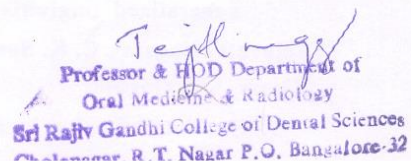 Professor & HOD Department of
Oral Medicine & Radiology
Sri Rajiv Gandhi College of Dental Sciences
Cholanagar, R.T. Nagar P.O. Bangalore-32